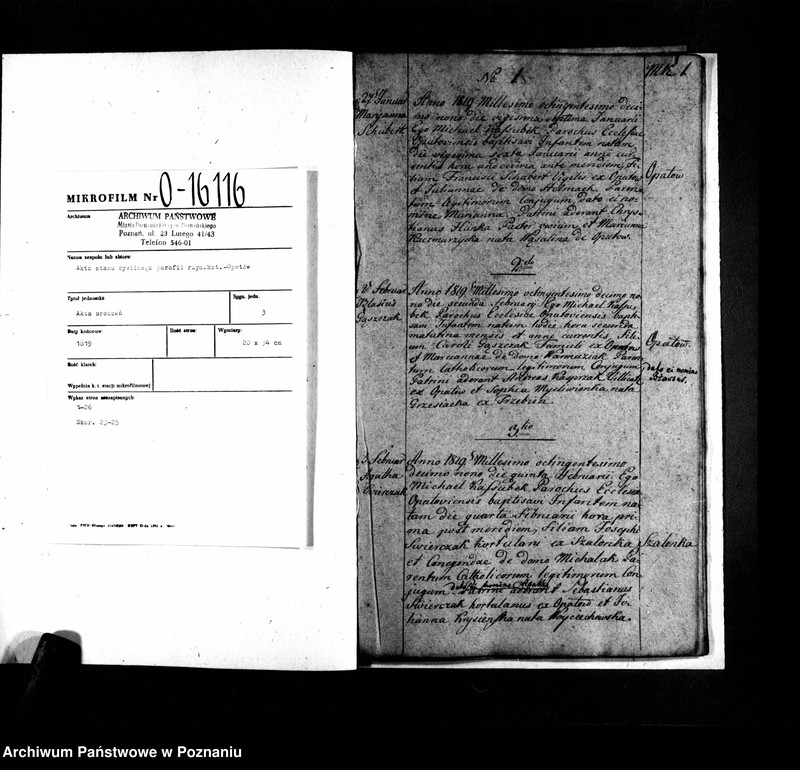 MIKROFILM Nr O-16116
Archiwum
ARCHIWUM PAŃSTWOWE
Poznań, ul. 23 Lutego 41/43
Telefon 546-01
Nazwa zespołu lub zbioru:
Akta stanu cywilnego parafii rzym.kat.-Opatów
Tytuł jednostki
Sygn. jedn.
Akta urodzeń
3
Daty końcowe:
Ilość stron:
Wymiary:
1819
20 x 34 cm
Ilość klatek:
Wypełnia k. t. stacji mikrofilmowej
Wykaz stron niezapisanych:
Skor. 23-25
No 1
27 Januar
Marjanna
Schubert
Anno 1819 Millesimo octingentesimo deci-
mo nono die vigesima septima Januarii
Ego Michael Kassubek Parochus Ecclesiae
Opatoviensis baptisavi Infantem natam
die vigesima sexta Januarii anni cur-
rentis hora undecima ante meridiem fi-
liam Francisci Schubert Vigilis ex Opatow
et Juliannae de domo Stelmach Paren-
tum legitimorum Conjugum dato ei no-
mine Marianna. Patrini aderant Chrys-
tianus Pastor ovium et Marianna
Kaczmarzycka nata de Opatow.
Opatow
2do
2 Februar
Blasius
Gaszczak
Anno 1819 Millesimo octingentesimo decimo no-
no die secunda Februarii Ego Michael Kassu-
bek Parochus Ecclesiae Opatoviensis bapti-
savi Infantem natum hodie hora secunda
matutina mensis et anni currentis, fili-
um Caroli Gaszczak Famuli ex Opatow
et Mariannae de domo Warmuziak Paren-
tum Catholicorum legitimorum Conjugum
Patrini aderant Andreas
ex Opatow et Sophia nata
Grzesiacka ex Trzebień
Opatow
dato ei nomine
Blasius.
3tio
5 Februar
Agatha
Swierczak
Anno 1819 Millesimo octingentesimo
decimo nono die quinta Februarii Ego
Michael Kassubek Parochus Ecclesiae
Opatoviensis baptisavi Infantem na-
tam die quarta Februarii hora pri-
ma post meridiem, Filiam Josephi
Swierczak hortulani ex Szalonka
et Conegundae de domo Michalak Pa-
rentum Catholicorum legitimorum Con-
jugum dato ei nomine Agatha Patrini aderant Sebastianus
Swierczak hortulanus ex Opatow et Jo-
hanna nata Woyciechowska.
Szalonka
Archiwum Państwowe w Poznaniu